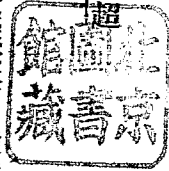 超
北京
圖書
館藏